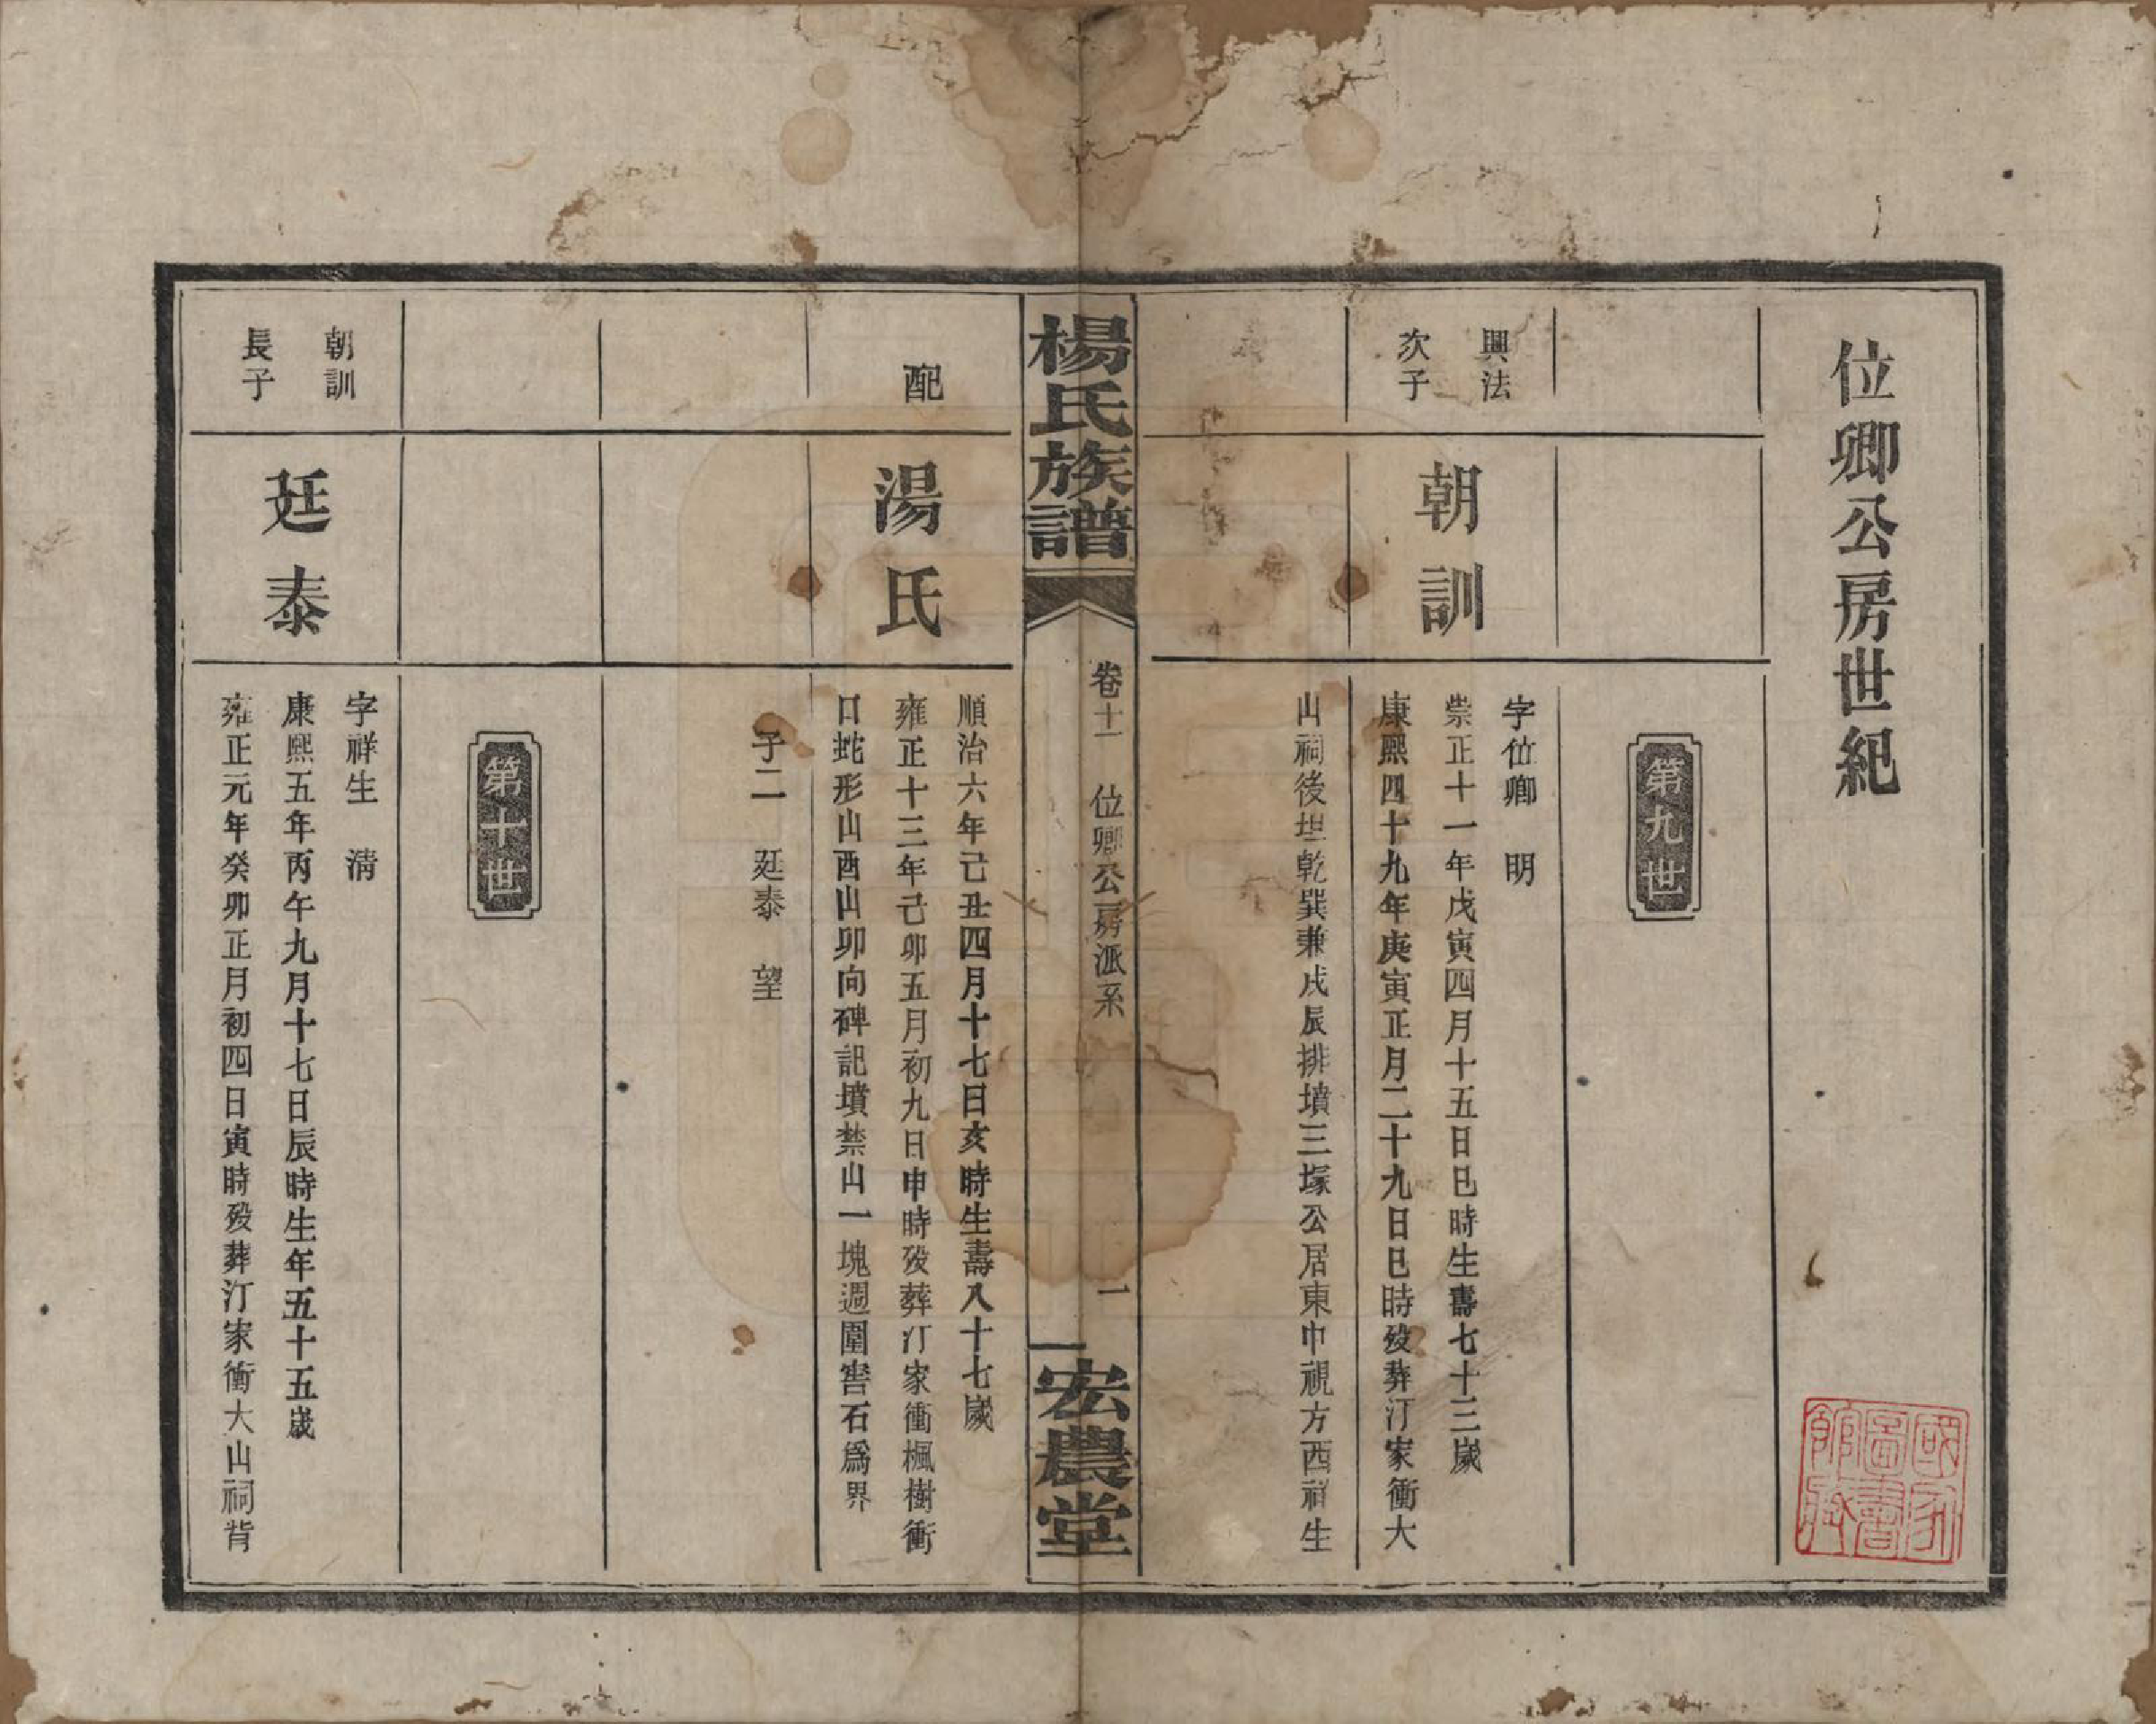 位卿公房世紀
第九世
興法
次子
朝訓
字位卿 明
崇正十一年戊寅四月十五日巳時生壽七十三歲
康熙四十九年庚寅正月二十九日巳時歿葬汀家衝大
山祠後坦乾巽兼戌辰排墳三塚公居東中視方西祥生
楊氏族譜
卷十一 位卿公房派系
一
宏農堂
配
湯氏
順治六年己丑四月十七日亥時生壽八十七歲
雍正十三年己卯五月初九日申時歿葬汀家衝楓樹衝
口蛇形山酉山卯向碑記墳禁山一塊週圍窖石爲界
子二 廷泰 望
第十世
朝訓
長子
廷泰
字祥生 清
康熙五年丙午九月十七日辰時生年五十五歲
雍正元年癸卯正月初四日寅時歿葬汀家衝大山祠背
國家
圖書
館藏